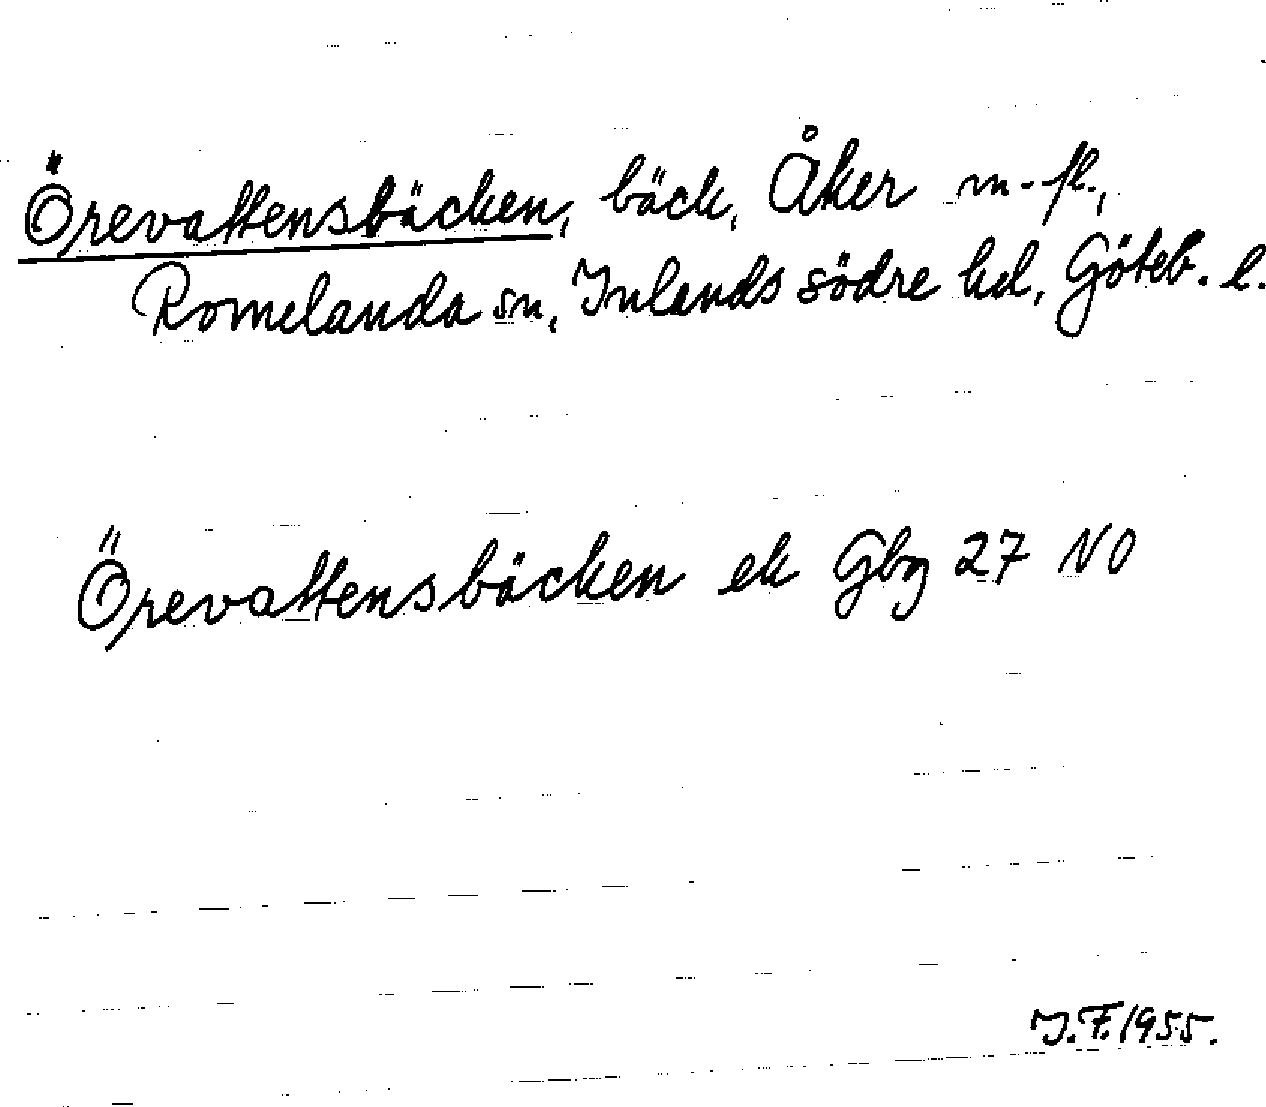 Örevattensbäcken, bäck, Åker m.fl.,
Romelanda sn, Inlands södre hd, Göteb. l.
Örevattensbäcken ek Gbg 27 NO
J.F. 1955.